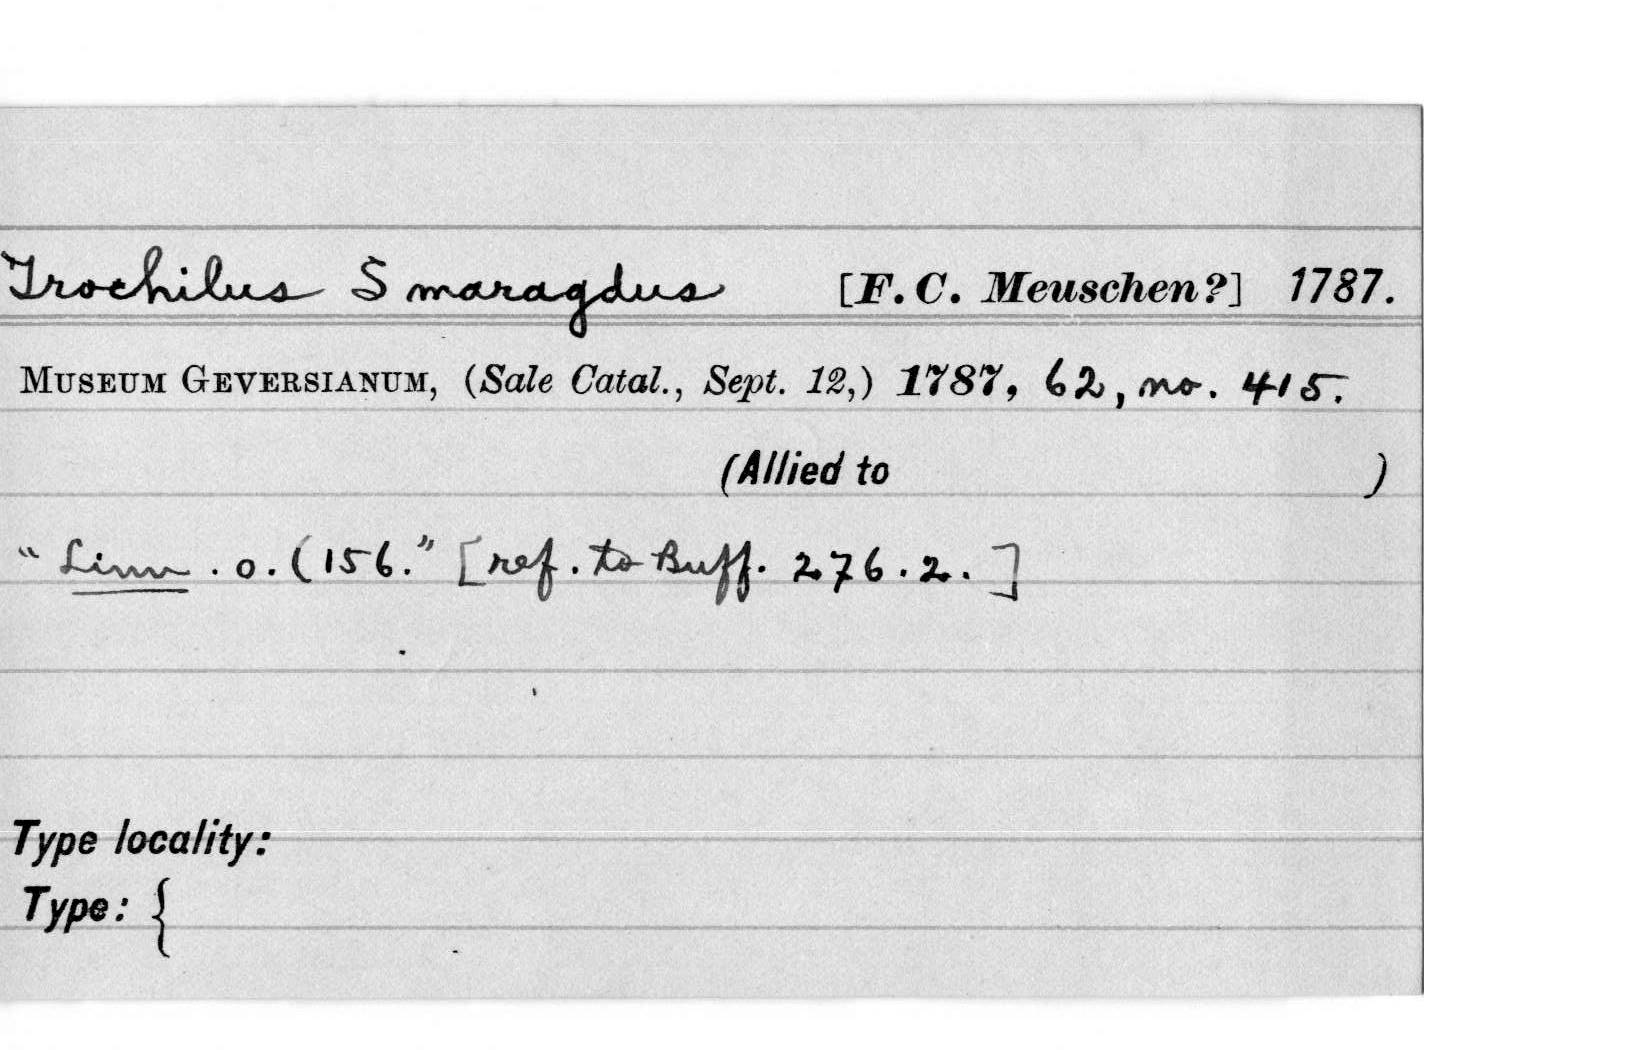 Trochilus Smaragdus [F. C. Meuschen?] 1787.
MUSEUM GEVERSIANUM, (Sale Catal., Sept. 12,) 1787, 62, no. 415.
(Allied to )
"Linn. o. (156." [ref. to Buff. 276.2.]
Type locality:
Type: {